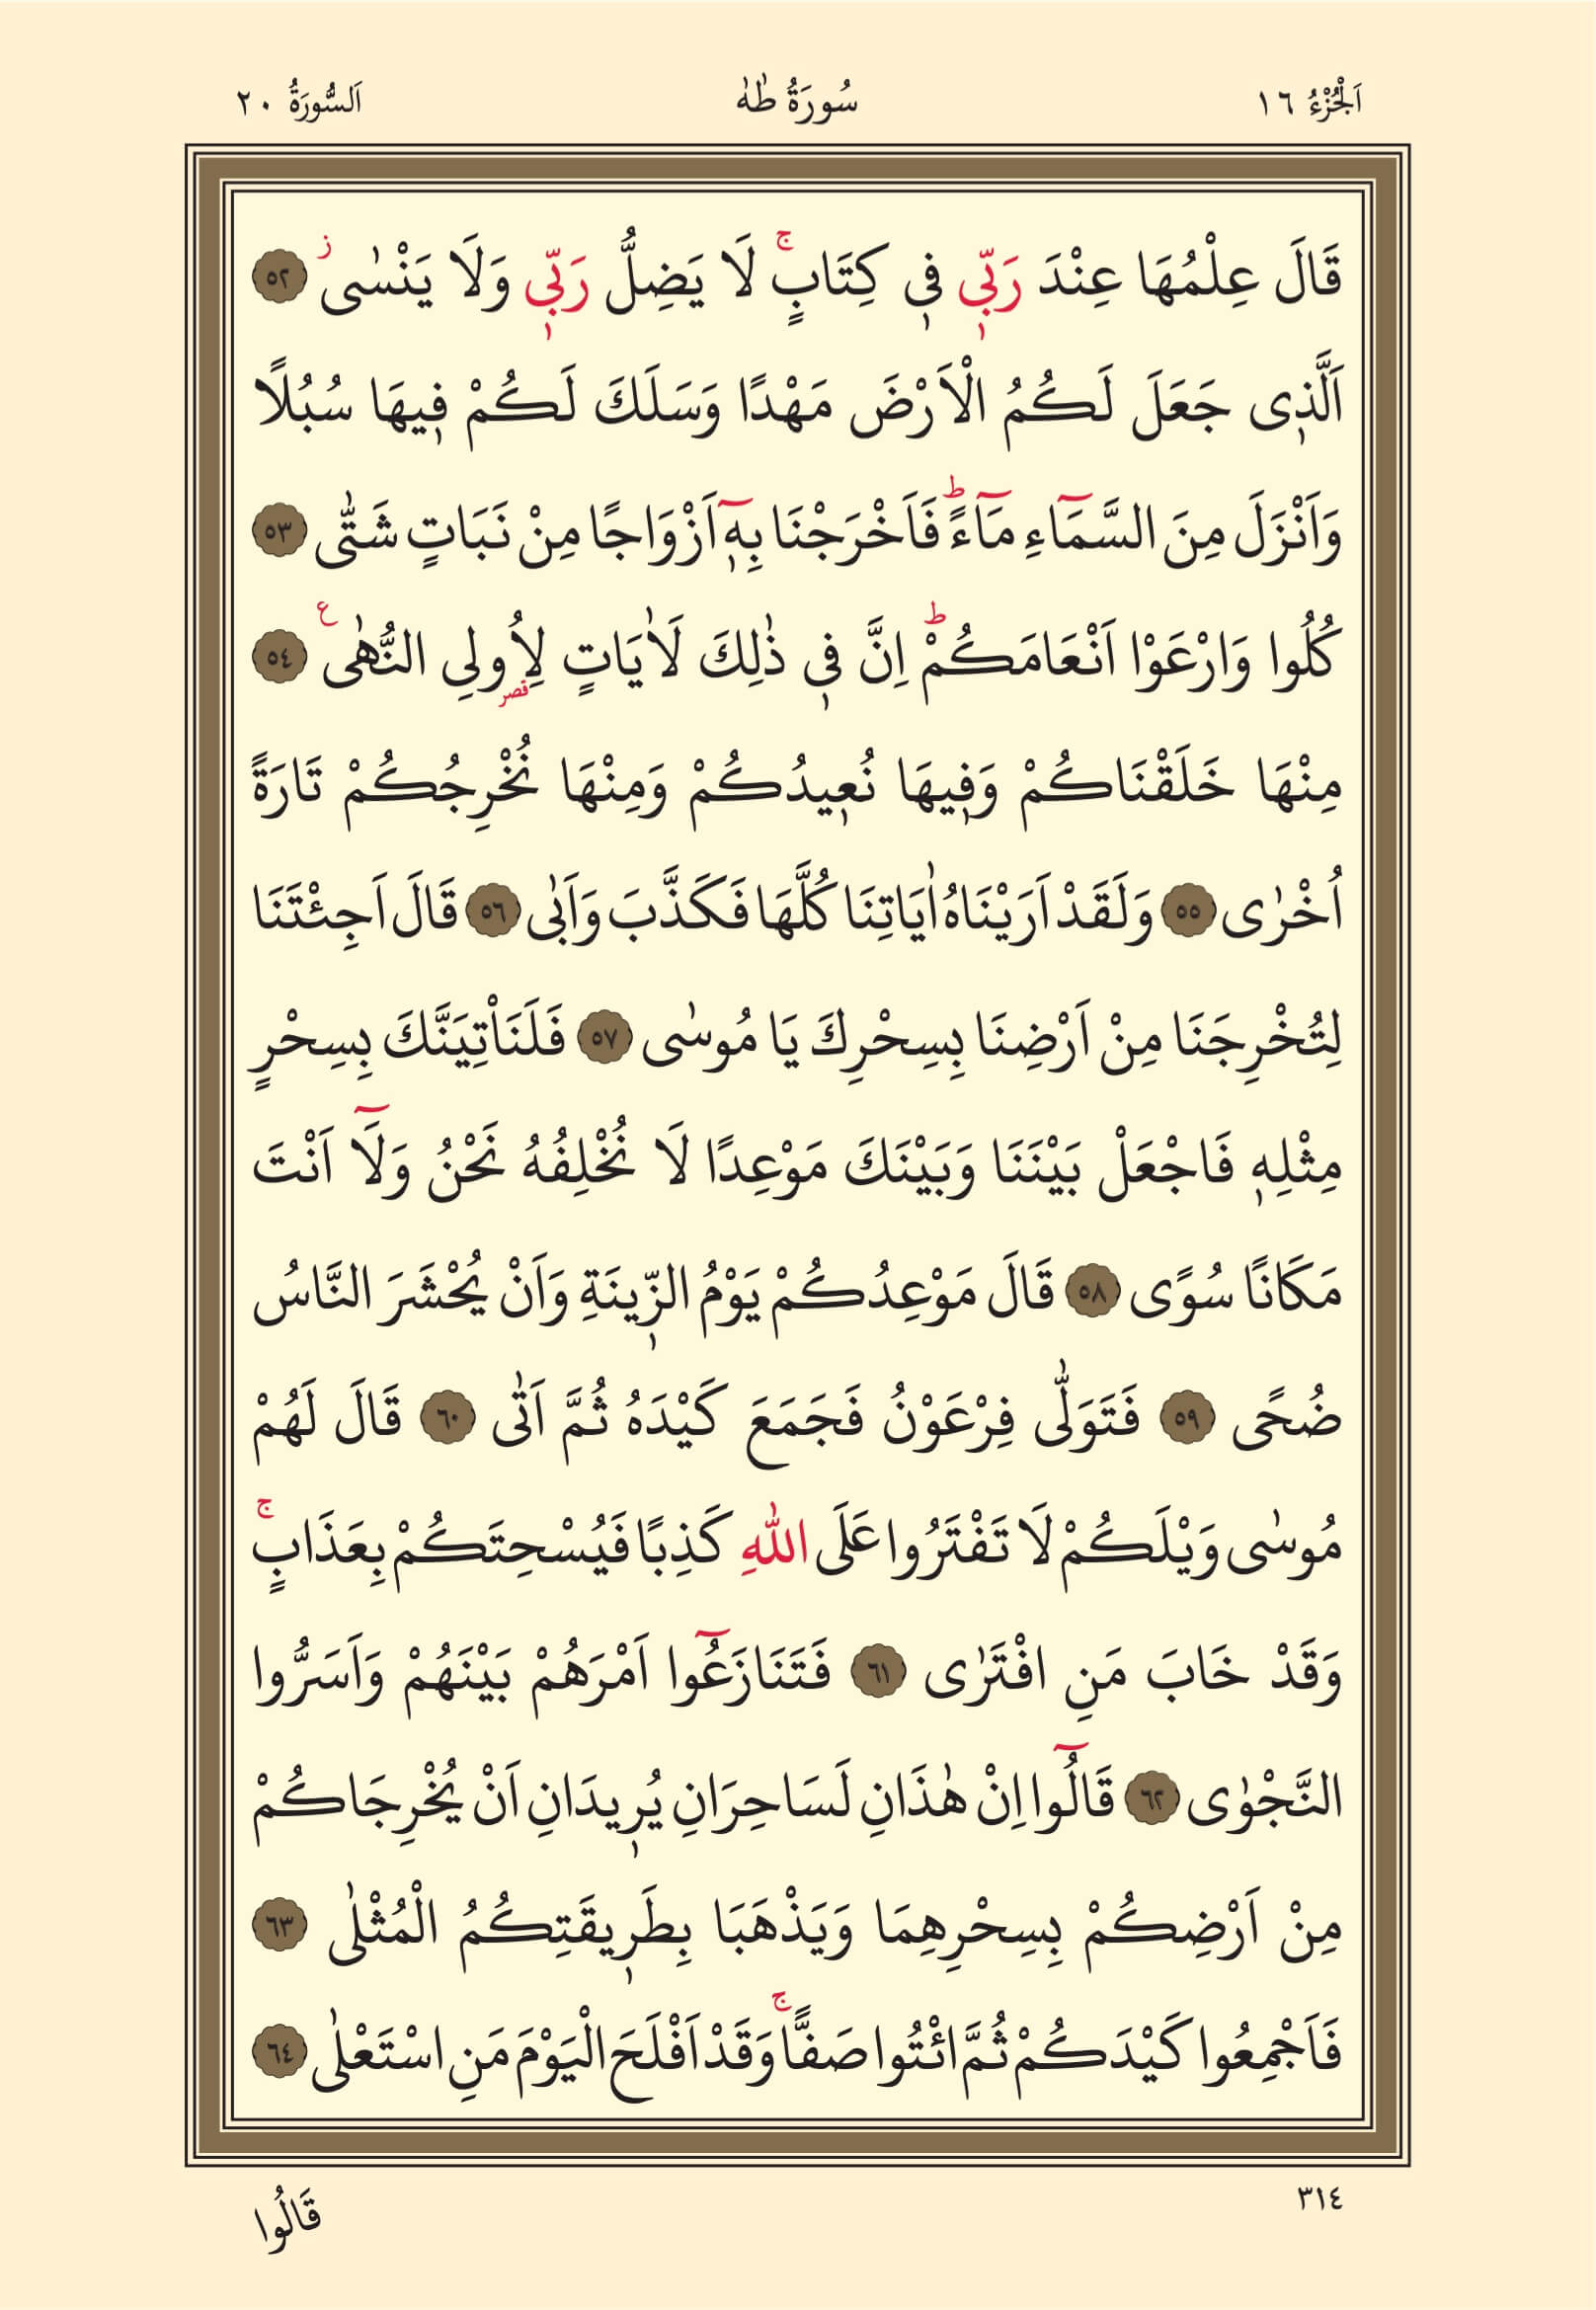 اَلْجُزْءُ ١٦ سُورَةُ طٰهٰ اَلسُّورَةُ ٢٠
قَالَ عِلْمُهَا عِنْدَ رَبّ۪ي ف۪ي كِتَابٍۚ لَا يَضِلُّ رَبّ۪ي وَلَا يَنْسٰىۘ ﴿٥٢﴾
اَلَّذ۪ى جَعَلَ لَكُمُ الْاَرْضَ مَهْدًا وَسَلَكَ لَكُمْ ف۪يهَا سُبُلًا
وَاَنْزَلَ مِنَ السَّمَٓاءِ مَٓاءًۜ فَاَخْرَجْنَا بِه۪ٓ اَزْوَاجًا مِنْ نَبَاتٍ شَتّٰى ﴿٥٣﴾
كُلُوا وَارْعَوْا اَنْعَامَكُمْۜ اِنَّ ف۪ي ذٰلِكَ لَاٰيَاتٍ لِاُولِي النُّهٰى ع ﴿٥٤﴾ قصر
مِنْهَا خَلَقْنَاكُمْ وَف۪يهَا نُع۪يدُكُمْ وَمِنْهَا نُخْرِجُكُمْ تَارَةً
اُخْرٰى ﴿٥٥﴾ وَلَقَدْ اَرَيْنَاهُ اٰيَاتِنَا كُلَّهَا فَكَذَّبَ وَاَبٰى ﴿٥٦﴾ قَالَ اَجِئْتَنَا
لِتُخْرِجَنَا مِنْ اَرْضِنَا بِسِحْرِكَ يَا مُوسٰى ﴿٥٧﴾ فَلَنَاْتِيَنَّكَ بِسِحْرٍ
مِثْلِه۪ فَاجْعَلْ بَيْنَنَا وَبَيْنَكَ مَوْعِدًا لَا نُخْلِفُهُ نَحْنُ وَلَٓا اَنْتَ
مَكَانًا سُوًى ﴿٥٨﴾ قَالَ مَوْعِدُكُمْ يَوْمُ الزّ۪ينَةِ وَاَنْ يُحْشَرَ النَّاسُ
ضُحًى ﴿٥٩﴾ فَتَوَلّٰى فِرْعَوْنُ فَجَمَعَ كَيْدَهُ ثُمَّ اَتٰى ﴿٦٠﴾ قَالَ لَهُمْ
مُوسٰى وَيْلَكُمْ لَا تَفْتَرُوا عَلَى اللّٰهِ كَذِبًا فَيُسْحِتَكُمْ بِعَذَابٍۚ
وَقَدْ خَابَ مَنِ افْتَرٰى ﴿٦١﴾ فَتَنَازَعُٓوا اَمْرَهُمْ بَيْنَهُمْ وَاَسَرُّوا
النَّجْوٰى ﴿٦٢﴾ قَالُٓوا اِنْ هٰذَانِ لَسَاحِرَانِ يُر۪يدَانِ اَنْ يُخْرِجَاكُمْ
مِنْ اَرْضِكُمْ بِسِحْرِهِمَا وَيَذْهَبَا بِطَر۪يقَتِكُمُ الْمُثْلٰى ﴿٦٣﴾
فَاَجْمِعُوا كَيْدَكُمْ ثُمَّ ائْتُوا صَفًّاۚ وَقَدْ اَفْلَحَ الْيَوْمَ مَنِ اسْتَعْلٰى ﴿٦٤﴾
٣١٤ قَالُوا